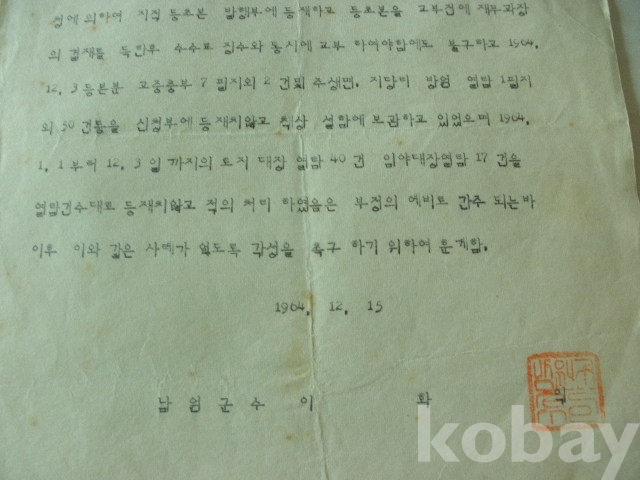 정에 의하여 지적 등초본 발행부에 등재하고 등초본을 교부전에 재무과장
의 결재를 득한후 수수료 징수와 동시에 교부 하여야함에도 불구하고 1964.
12. 3 등본분 고중총부 7 필지외 2 건및 주생면. 지당리 방엄 열람 1필지
외 50 건등을 신청부에 등재치않고 책상 설합에 보관하고 있었으며 1964.
1. 1 부터 12. 3 일 까지의 토지 대장 열람 40 건 임야대장열람 17 건을
열람건수대로 등재치않고 적의 처리 하였음은 부정의 예비로 간주 되는바
이후 이와 같은 사태가 없도록 각성을 촉구 하기 위하여 훈계함.
1964. 12. 15
남원군수 이 학
kobay